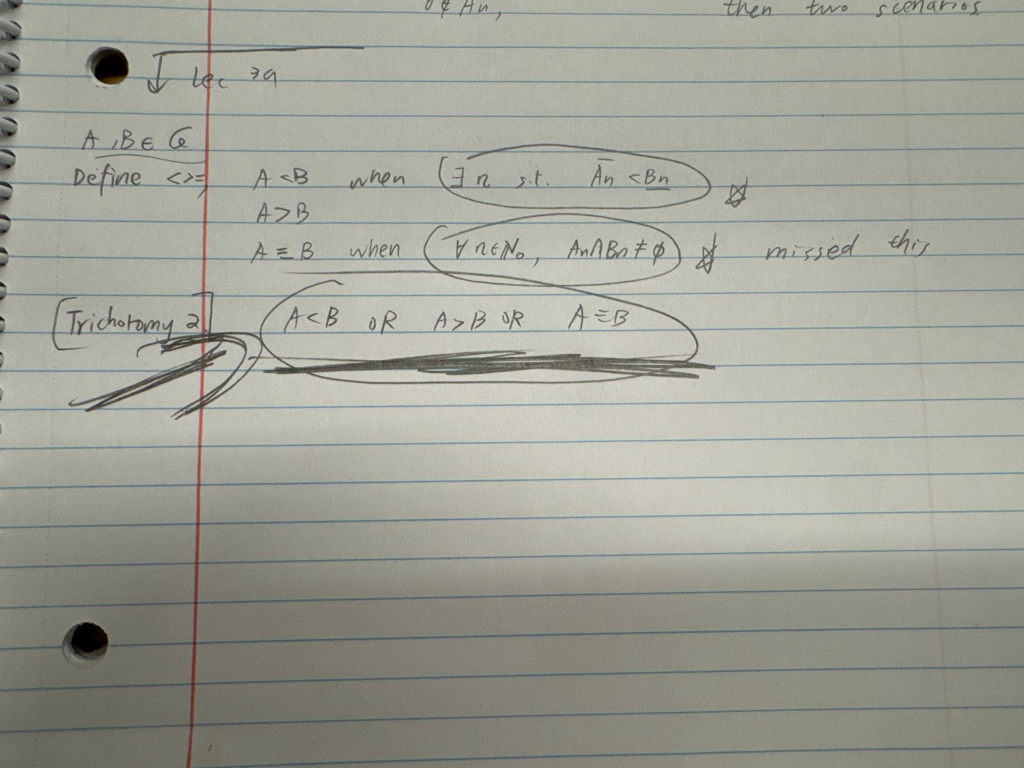 0 ∉ An, then two scenarios
Lec 39
A, B ∈ C
Define <>= A < B when ∃ n s.t. A̅n < B̲n
A > B
A ≡ B when ∀ n ∈ N₀, An ∩ Bn ≠ ∅ missed this
[Trichotomy 2] A < B OR A > B OR A ≡ B